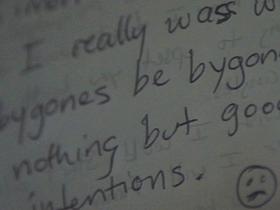 I really wass w
bygones be bygon
nothing but goo
intentions.